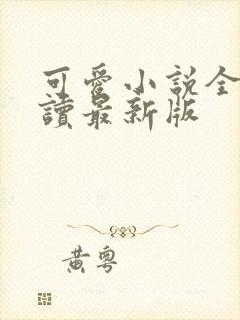 可愛小說全
讀最新版
黃粵